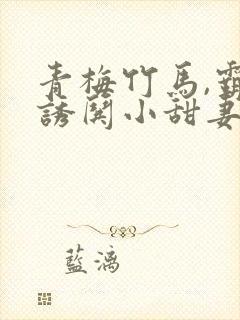 青梅竹馬,霸
誘関小甜妻
藍漓